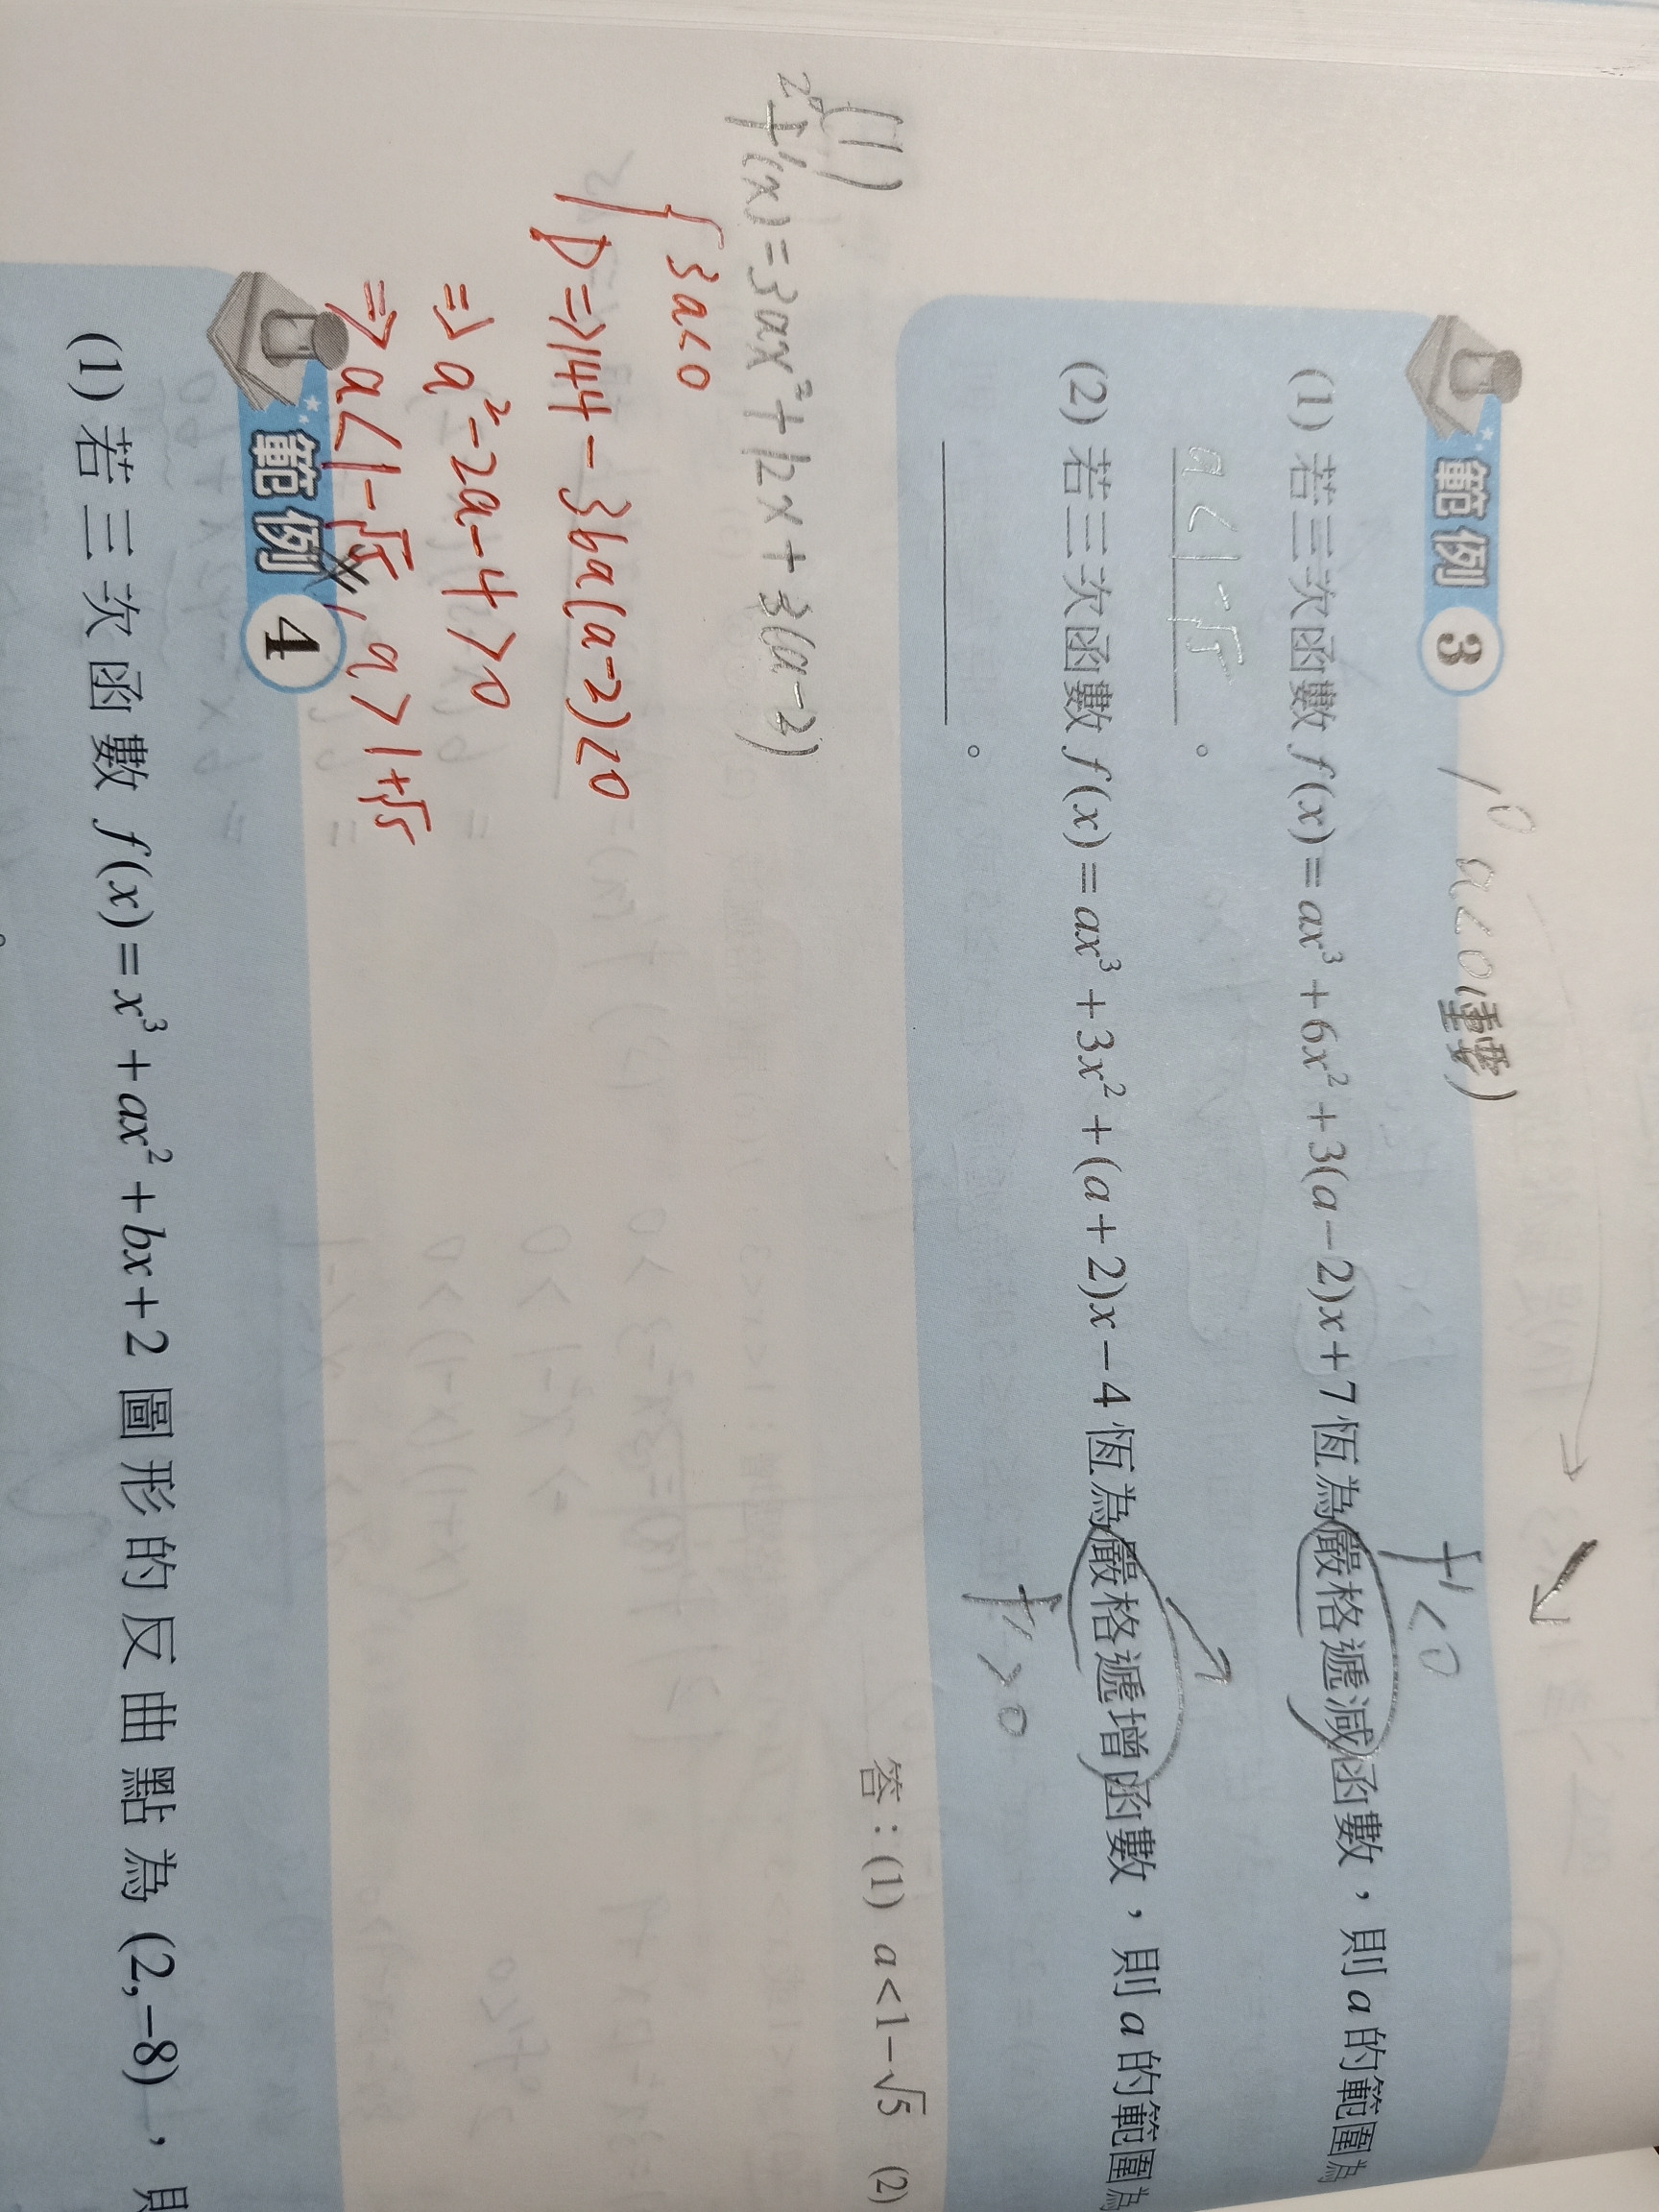 1° a<0(重要)
f'<0
範例 3
(1) 若三次函數 f(x)=ax³+6x²+3(a−2)x+7 恆為嚴格遞減函數，則 a 的範圍為
a<1-√5 。
(2) 若三次函數 f(x)=ax³+3x²+(a+2)x−4 恆為嚴格遞增函數，則 a 的範圍為
f'>0
。
答：(1) a<1−√5 (2)
(1)
2° f'(x)=3ax²+12x+3(a-2)
3a<0
D⇒144-36a(a-2)<0
⇒a²-2a-4>0
⇒a<1-√5, a>1+√5
範例 4
(1) 若三次函數 f(x)=x³+ax²+bx+2 圖形的反曲點為 (2,−8)，